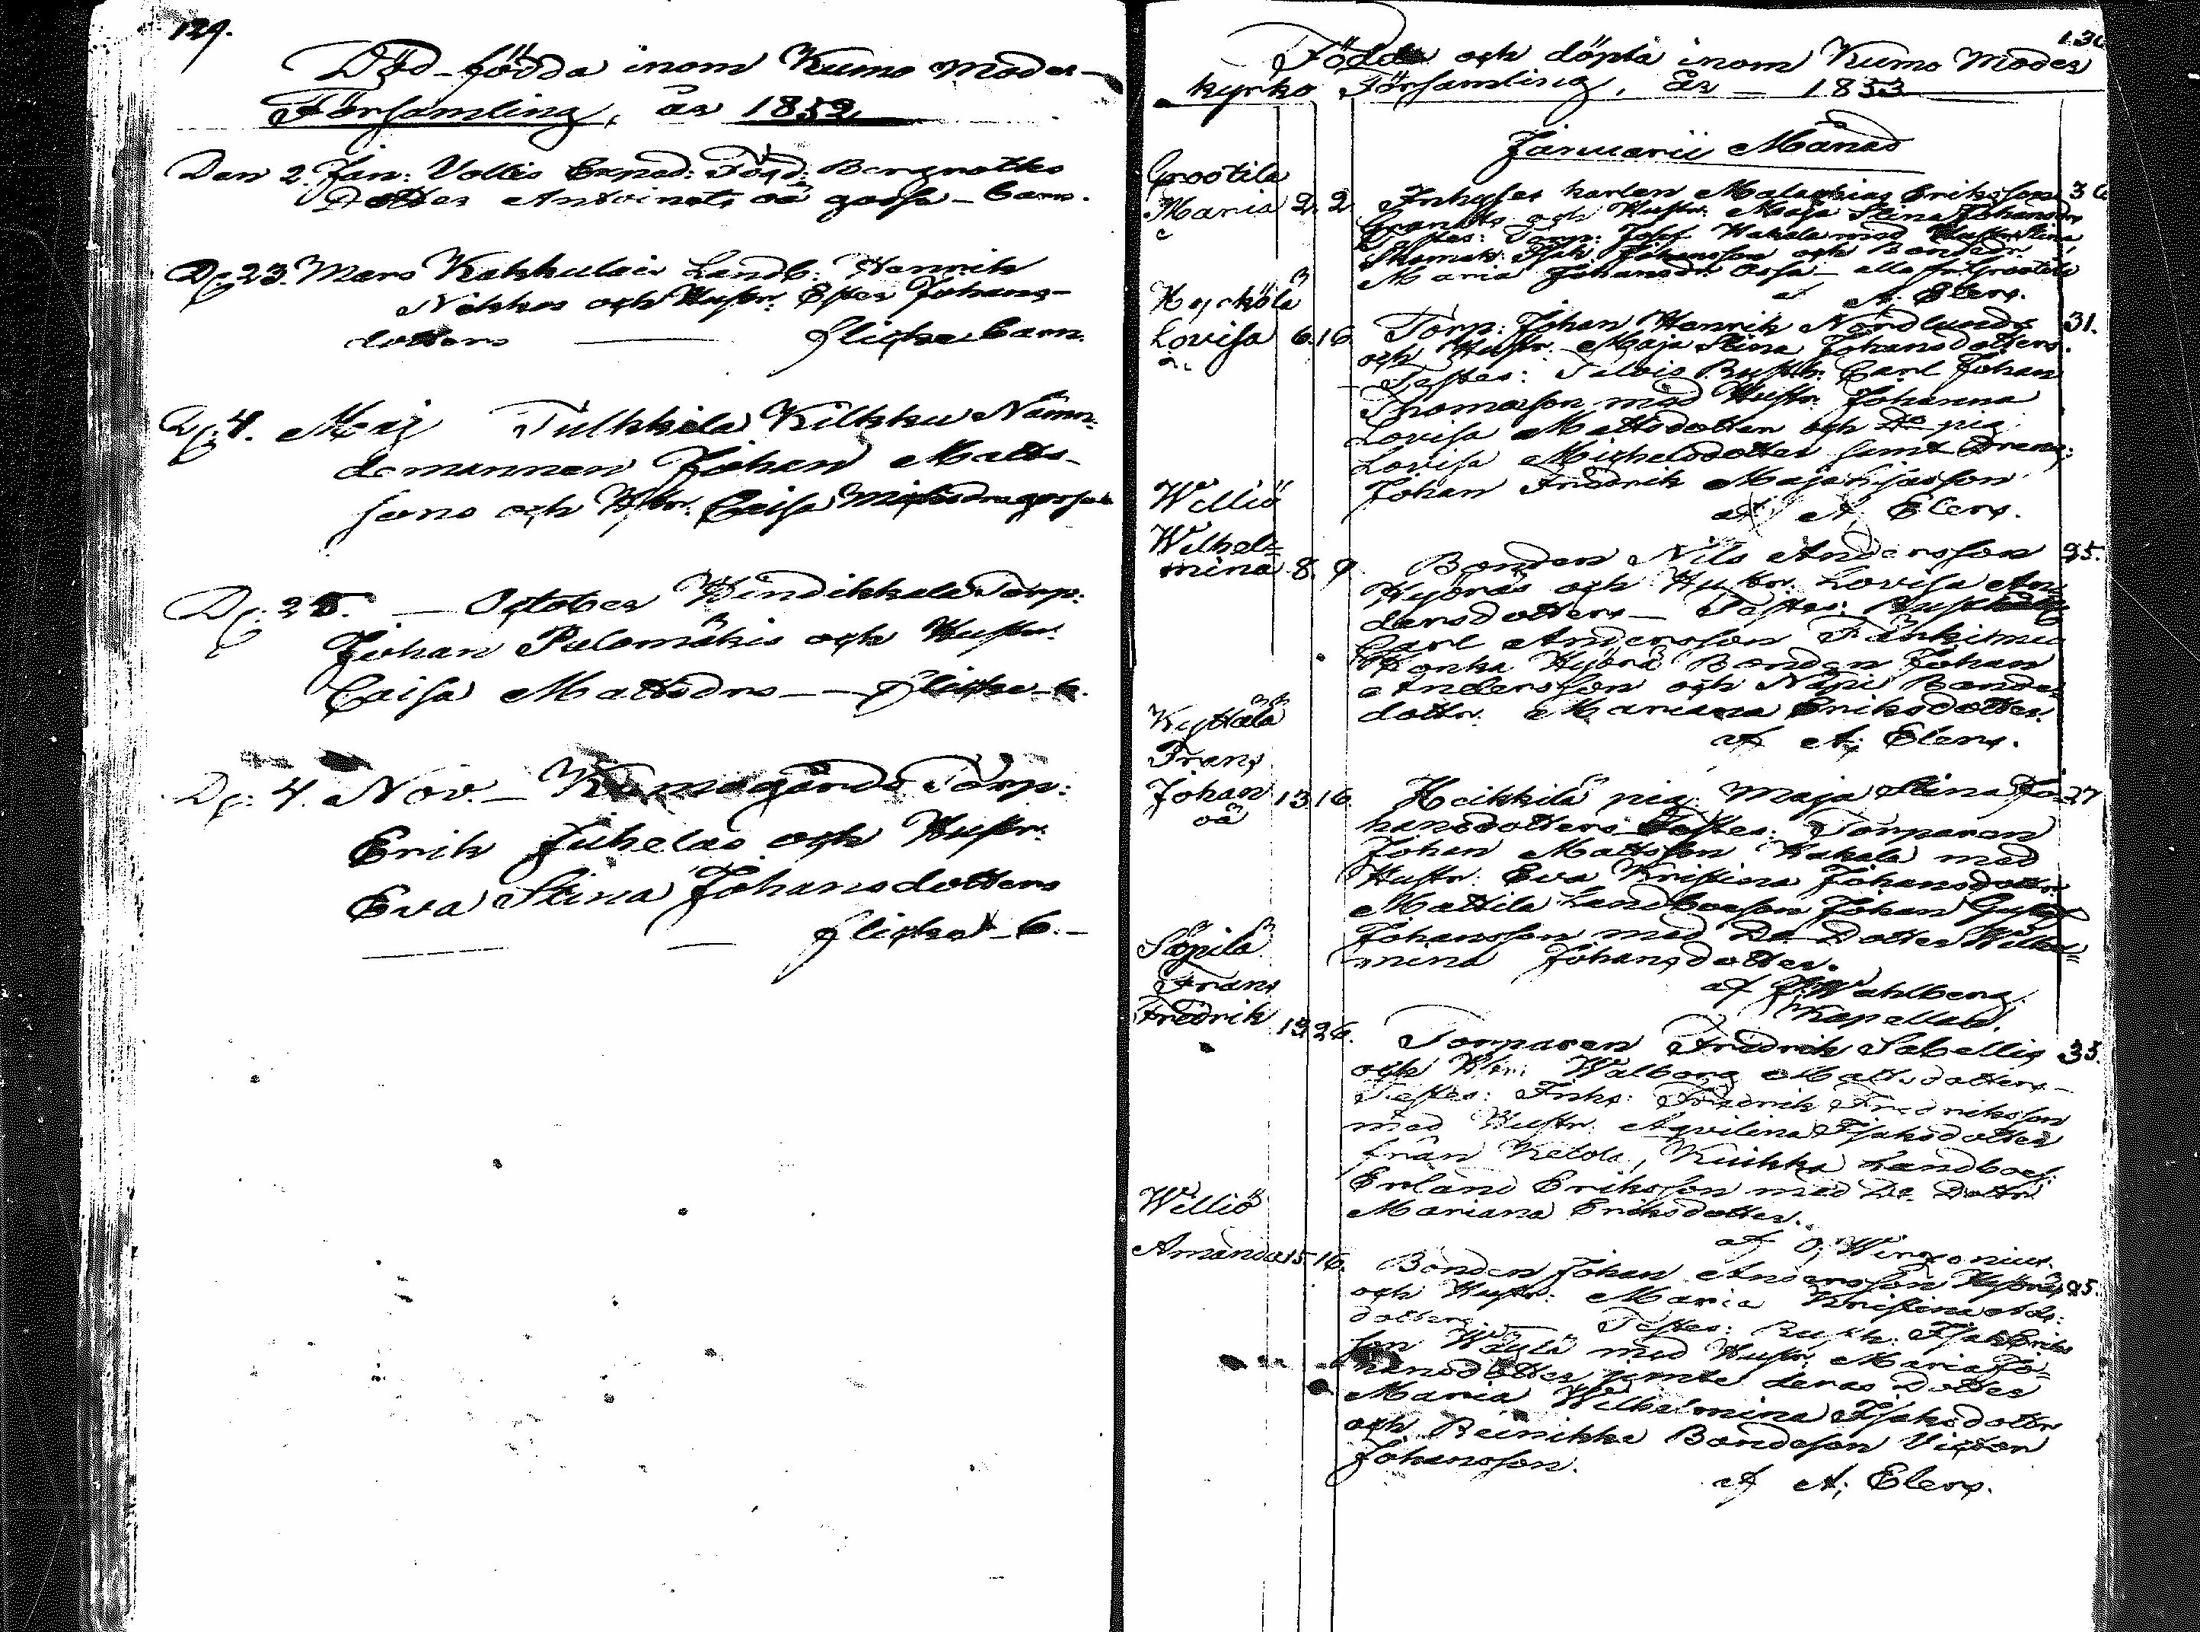 129.
Död-födda inom Kumo Moder-
Församling, år 1852
Den 2. Jan: Voltis Exped: Fogd: Bergroths
Dotter Antoinets oä gosse-barn.
D: 23. Mars Kakkulais Landb. Henrik
Nikkos och Hustr. Ester Johans-
dotters flicke barn.
D: 4. Maj Tulkkila Kilkku Nämn-
demannen Johan Matts-
sons och Hstr. Caisa
D: 25. — October Hindikkala Torp:
Johan Pulomäkis och Hustr.
Caisa Mattsdrs — flicke-b.
D: 4. Nov. — Kumogårds Torp:
Erik Juhelas och Hustr:
Eva Stina Johansdotters
flicke-b.-
130
Födde och döpta inom Kumo Moder
kyrko Församling, År — 1853
Januarii Månad
Grootila
Maria 2. 2 Inhyses karlen Malachias Eriksson 36
och Hustr. Maja Stina Johansdrs
Testes: Torp: Hakala med Hustr Stina
Johansson och
Maria Johansdr Ossa — alla fr Grootila
af A. Elers.
Kyrkölä
Lovisa 6. 16. Torp: Johan Henrik Nordlunds 31.
och Hustr. Maja Stina Johansdotters.
Testes: Talois Rusth. Carl Johan
Thomasson med Hustr. Johanna
Lovisa Mattsdotter och Do pig.
Lovisa Michelsdotter samt Dreng:
Johan Fredrik Majahisasson
af A. Elers.
Williö
Wilhel=
mina 8. 9 Bonden Nils Andersson 25.
Hyöräs och Hustr. Lovisa An
dersdotters — Testes:
Carl Andersson
Hyörä Bonden Johan
Andersson och Näpi Bonde
dottr. Mariana Eriksdotter.
af A; Elers.
Kyttälä
Frans
Johan 13 16. Heikkilä pig. Maja Stina Jo- 27
oä hansdotters Testes: Torparen
Johan Mattsson Hakala med
Hustr. Eva Kristina Johansdottr.
Mattila Landboeson Johan Gustaf
Johansson med Do Dotter Wilhel=
mina Johansdotter.
af Wahlberg
Kapellan.
Säpilä
Frans
Fredrik 13 26. Torparen Fredrik Sabellis 33.
och Hstr: Walborg Mattsdotters —
Testes: Inhs: Fredrik Fredriksson
med Hustr. Aqvilina Isaksdotter
från Ketola, Kuikka Landboes:
Erland Eriksson med Do Dottr
Mariana Eriksdotter.
af O;
Williö
Amanda 15. 16. Bonden Johan Andersson Hyöräs 25.
och Hustr: Maria Kristina
dotters — Testes: Rusth: Isak Eriks
son Wäylä med Hustr. Maria Jo-
hansdotter jemte deras Dotter
Maria Wilhelmina Isaksdottr
och Reinikka Bondeson Victor
Johansson.
af A; Elers.